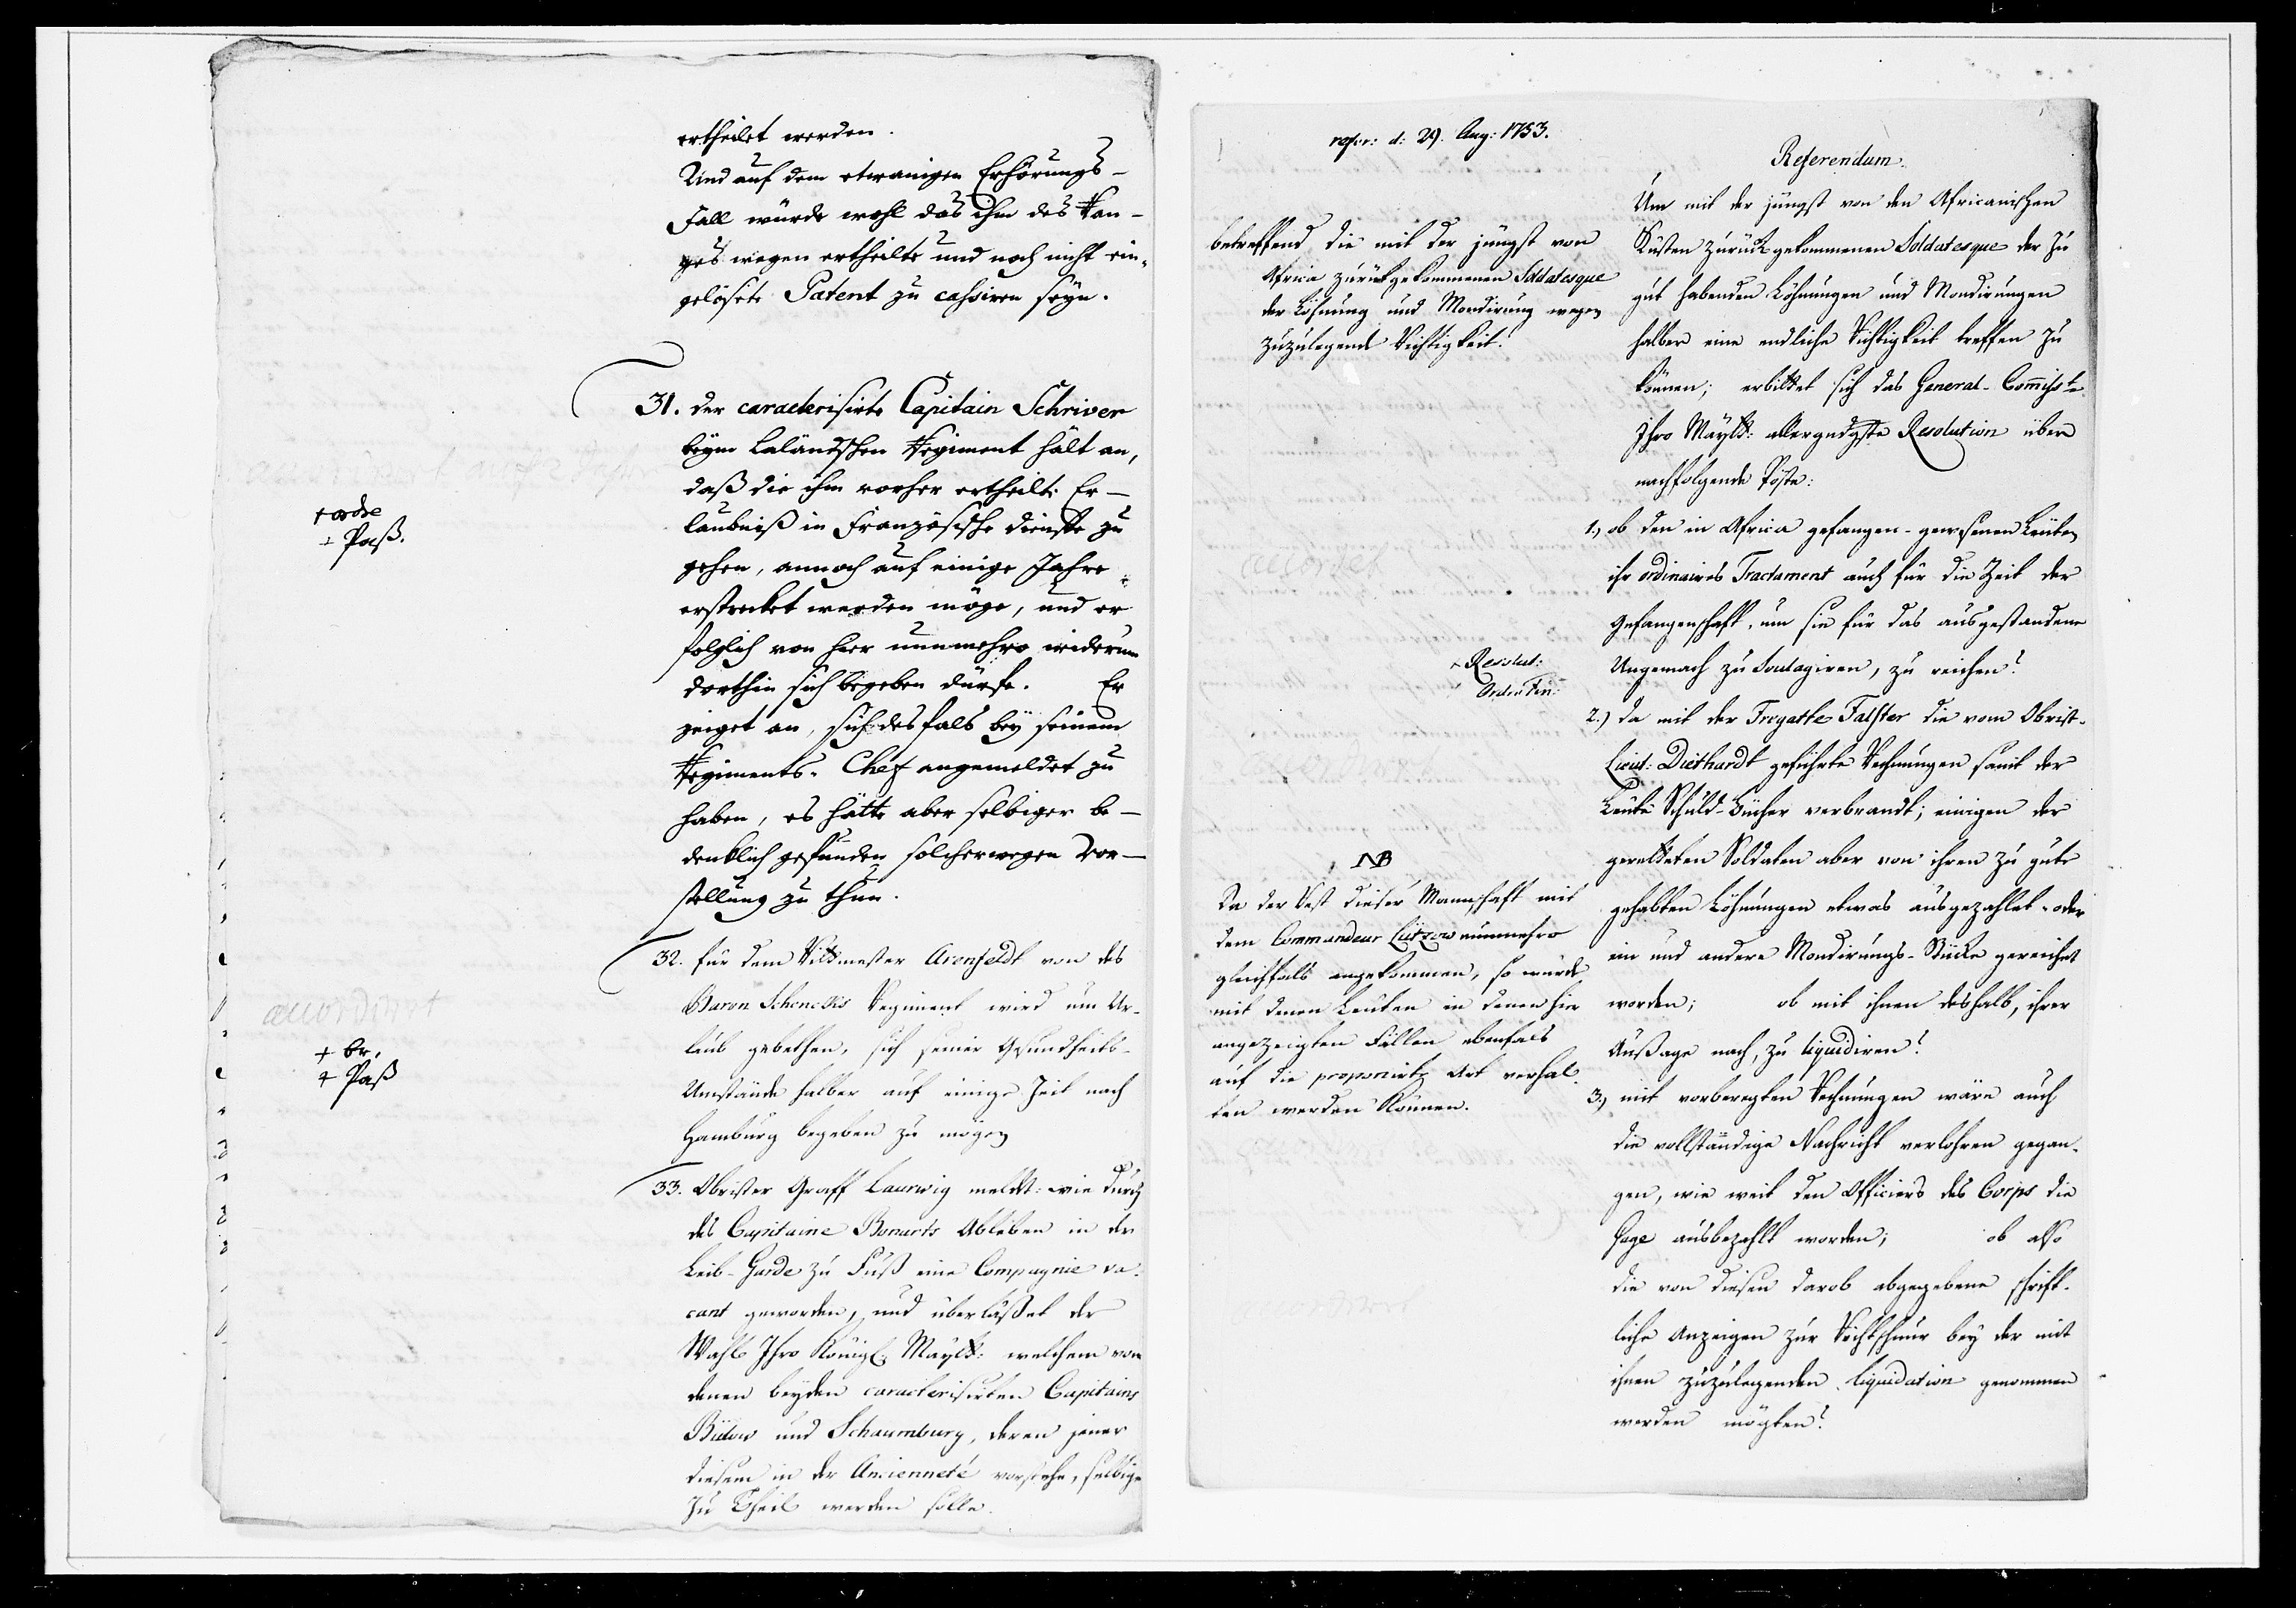 ertheilet werden.
Und auf dem etwanigen Erhörungs-
Fall würde wohl das ihm des Ran-
ges wegen ertheilte und noch nicht ein-
gelösete Patent zu cassiren seyn.
31. der caracterisirte Capitain Schriver
beym Laländschen Regiment hält an,
daß die ihm vorher ertheilte Er-
laubniß in Französische Dienste zu
gehen, annoch auf einige Jahre
erstrecket werden möge, und er
folglich von hier nunmehro wiederum
dorthin sich begeben dürfe. Er
zeiget an, sich desfals bey seinem
Regiments-Chef angemeldet zu
haben, es hätte aber selbiger be-
denklich gefunden solcherwegen Vor-
stellung zu thun.
+ ordre
+ Paß.
32. für dem Rittmester Arenfeldt von des
Baron Schencks Regiment wird um Ur-
laub gebethen, sich seiner Gesundheits-
Umstände halber auf einige Zeit nach
Hamburg begeben zu mögen
accordirt
+ br.
+ Paß
33. Obrister Graff Laurwig meldt: wie durch
des Capitaine Bonarts Ableben in der
Leib-Garde zu Fuß eine Compagnie va-
cant geworden, und überläßet der
Wahl Ihro Königl. Maytt: welchem von
denen beyden caracterisirten Capitains
Bülow und Schaumburg, deren jener
diesem in der Ancienneté vorstehe, selbige
zu Theil werden solle.
refer: d: 29. Aug: 1753.
betreffend die mit der jüngst von
Africa zurückgekommenen Soldatesque
der Löhnung und Mondirung wegen
zuzulegende Richtigkeit.
Referendum.
Um mit der jüngst von den Africanischen
Küsten zurückgekommenen Soldatesque der zu
gut habenden Löhnungen und Mondirungen
halber eine endliche Richtigkeit treffen zu
können; erbittet sich das General-Commiss.
Ihro Maytt: allergndgste Resolution über
nachfolgende Pöste:
1.) ob den in Africa gefangen-gewesenen Leuten
ihr ordinaires Tractament auch für die Zeit der
Gefangenschaft, um sie für das ausgestandene
Ungemach zu Soulagiren, zu reichen?
+ Resolut:
2.) da mit der Fregatte Falster die vom Obrist-
Lieut: Diethardt geführte Rechnungen samt der
Leute Schuld-Bücher verbrandt; einigen der
geretteten Soldaten aber von ihren zu gute
gehabten Löhnungen etwas ausgezahlet-oder
ein und andere Mondirungs-Stücke gereichet
worden; ob mit ihnen deshalb, ihrer
Außage nach, zu liquidiren?
NB
Da der Rest dieser Mannschaft mit
dem Commandeur Lützow nunmehro
gleichfals angekommen, so würde
mit denen Leuten in denen hier
angezeigten Fällen ebenfals
auf die proponirte Art verhal-
ten werden können.
3.) mit vorberegten Rechnungen wäre auch
die vollständige Nachricht verlohren gegan-
gen, wie weit den Officiers des Corps die
Gage ausbezahlt worden; ob also
die von diesen darob abgegebene schrift-
liche Anzeigen zur Richtschnur bey der mit
ihnen zuzulegenden liquidation genommen
werden mögten?